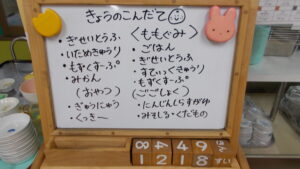 きょうのこんだて
・ぎせいとうふ
・いためきゅうり
・もずくすーぷ
・みかん
(おやつ)
・ぎゅうにゅう
・くっきー
<ももぐみ>
・ごはん
・ぎせいとうふ
・すてぃっくきゅうり
・もずくすーぷ
(ごごしょく)
・にんじんしらすがゆ
・みそしる・くだもの
8 4 4 9
1 2 1 8 すい